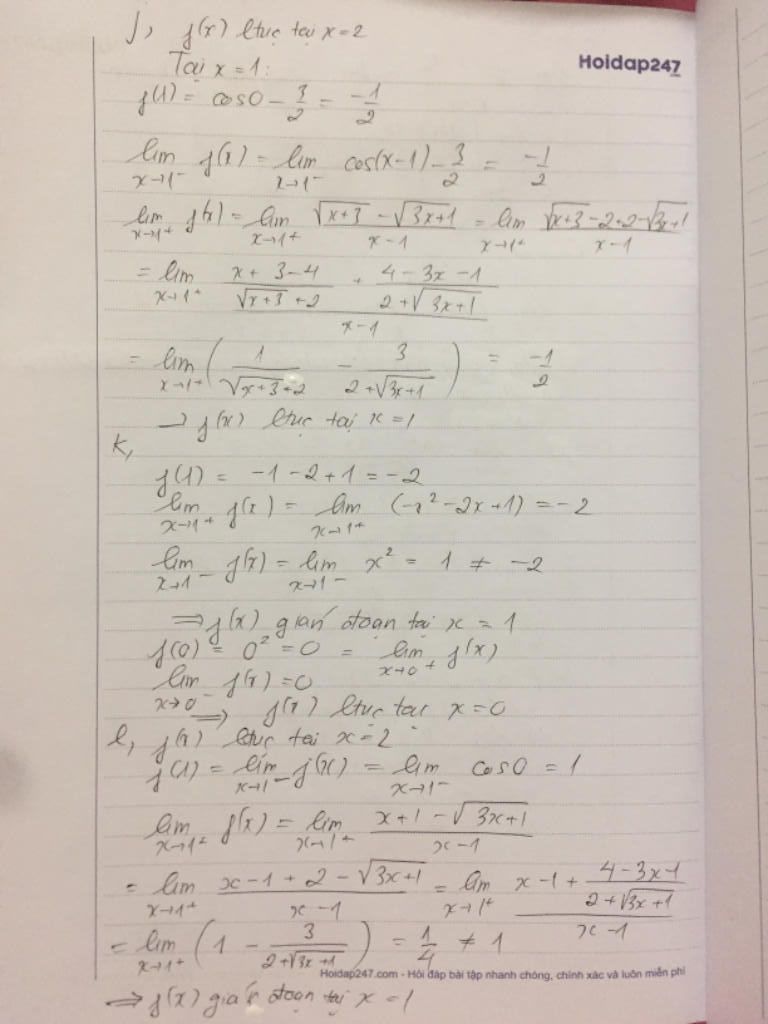 j, f(x) ltục tại x=2
Hoidap247
Tại x=1:
f(1) = cos0 - 3/2 = -1/2
lim x→1⁻ f(x) = lim x→1⁻ cos(x-1) - 3/2 = -1/2
lim x→1⁺ f(x) = lim x→1⁺ (√(x+3) - √(3x+1))/(x-1) = lim x→1⁺ (√(x+3) - 2 + 2 - √(3x+1))/(x-1)
= lim x→1⁺ ((x+3-4)/(√(x+3)+2) + (4-3x-1)/(2+√(3x+1)))/(x-1)
= lim x→1⁺ (1/(√(x+3)+2) - 3/(2+√(3x+1))) = -1/2
→ f(x) ltục tại x=1
k,
f(1) = -1-2+1 = -2
lim x→1⁺ f(x) = lim x→1⁺ (-x²-2x+1) = -2
lim x→1⁻ f(x) = lim x→1⁻ x² = 1 ≠ -2
⇒ f(x) gián đoạn tại x = 1
f(0) = 0² = 0 = lim x→0⁺ f(x)
lim x→0⁻ f(x) = 0
⇒ f(x) ltục tại x=0
l, f(x) ltục tại x=2
f(1) = lim x→1⁻ f(x) = lim x→1⁻ cos0 = 1
lim x→1⁺ f(x) = lim x→1⁺ (x+1-√(3x+1))/(x-1)
= lim x→1⁺ (x-1+2-√(3x+1))/(x-1) = lim x→1⁺ (x-1+(4-3x-1)/(2+√(3x+1)))/(x-1)
= lim x→1⁺ (1 - 3/(2+√(3x+1))) = 1/4 ≠ 1
Hoidap247.com - Hỏi đáp bài tập nhanh chóng, chính xác và luôn miễn phí
⇒ f(x) gián đoạn tại x=1